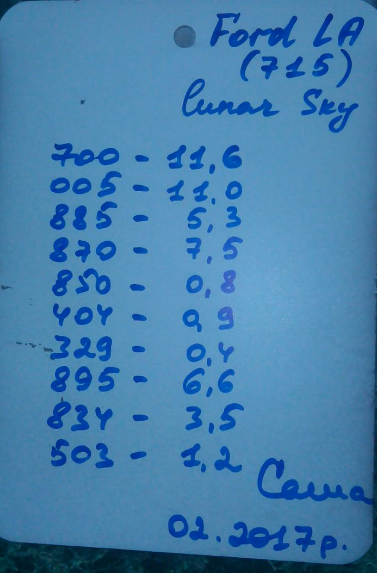 Ford LA
(715)
lunar Sky
700 - 11,6
005 - 11,0
885 - 5,3
870 - 7,5
850 - 0,8
404 - 0,9
329 - 0,4
895 - 6,6
834 - 3,5
503 - 1,2
Саша
02.2017р.